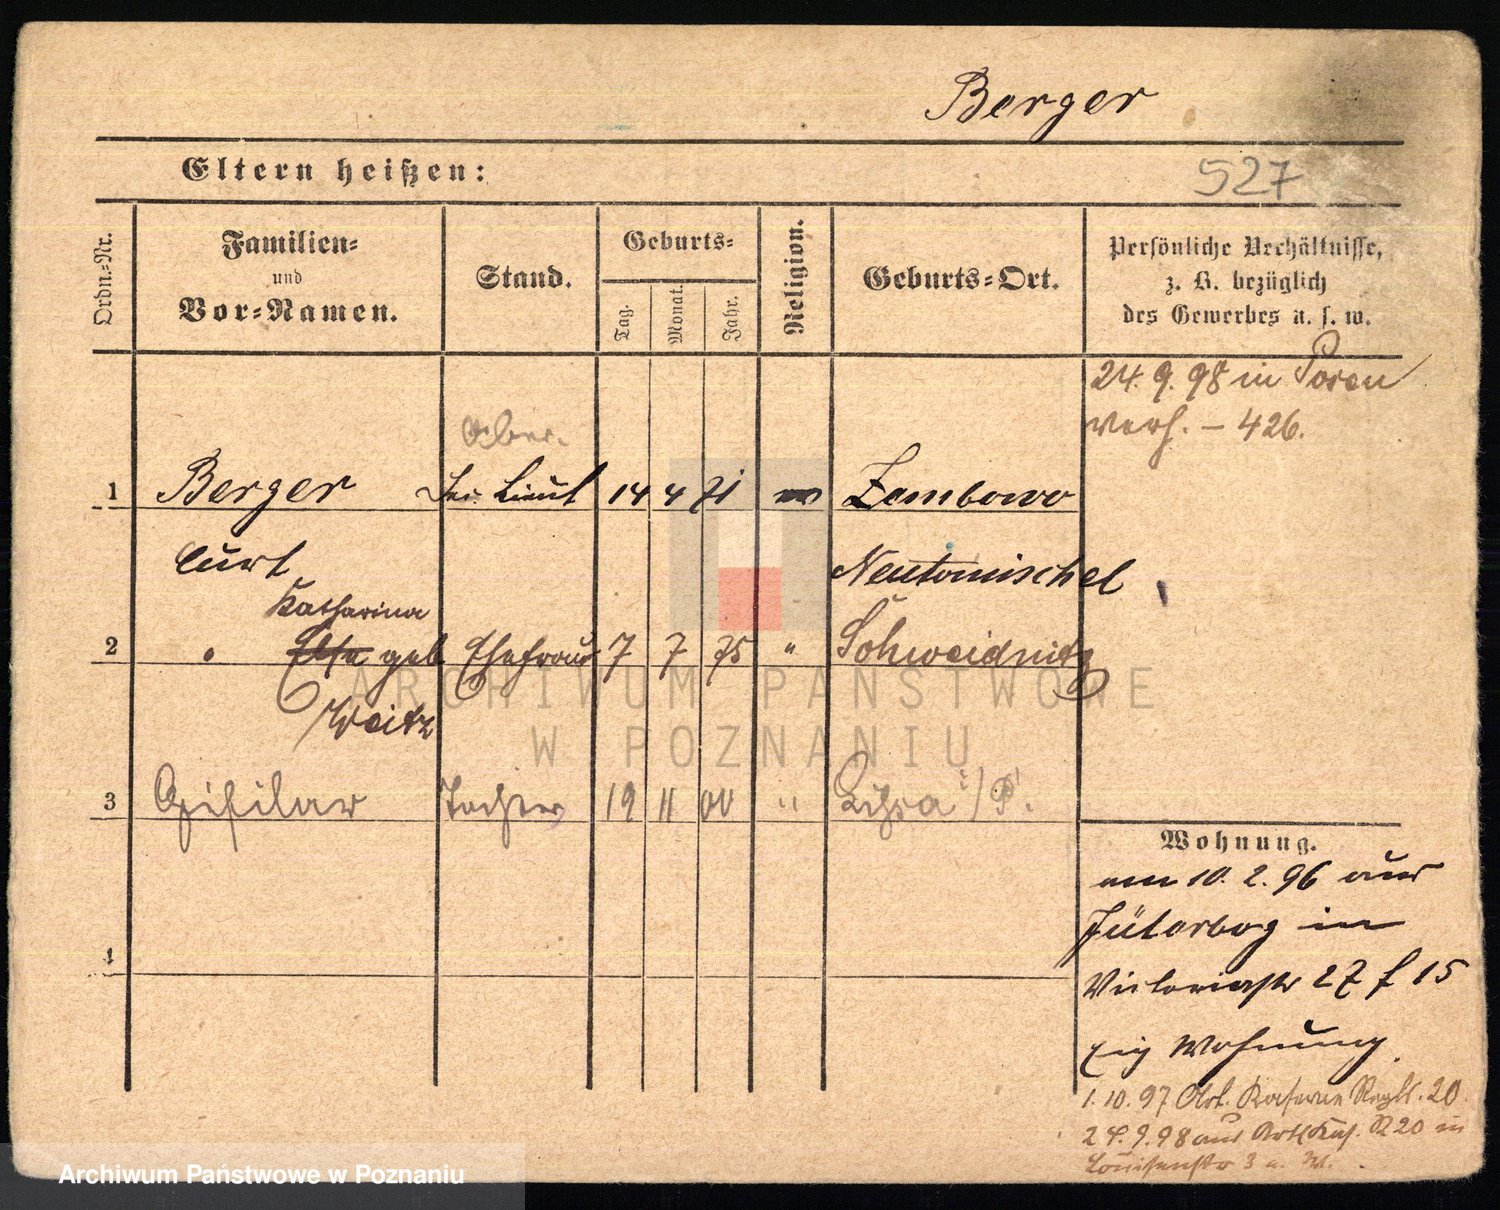 Berger
Eltern heißen:
527
Ordn.-Nr.
Familien-
und
Vor-Namen.
Stand.
Geburts-
Tag.
Monat.
Jahr.
Religion.
Geburts-Ort.
Persönliche Verhältnisse,
z. B. bezüglich
des Gewerbes u. s. w.
24. 9. 98 in Posen
verh. - 426.
Ober-
1 Berger Sec. Lieut 14 4 71 ev Zembowo
Curt Neutomischel
Katharina
2 " Else geb Ehefrau 7 7 75 " Schweidnitz
Weitz
3 Tochter 19 11 00 "
4
Wohnung.
am 10. 2. 96 aus
Jüterbog in
Victoriastr 27 f 15
Eig Wohnung
1. 10. 97 Art. Kaserne Regts. 20
24. 9. 98 aus Art Kas. R 20 in
Louisenstr 3 a. W.
ARCHIWUM PAŃSTWOWE
W POZNANIU
Archiwum Państwowe w Poznaniu